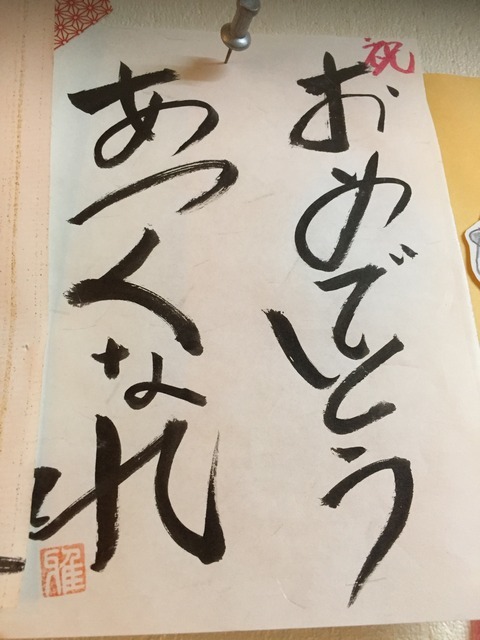 祝
おめでとう
あつくなれ
雅